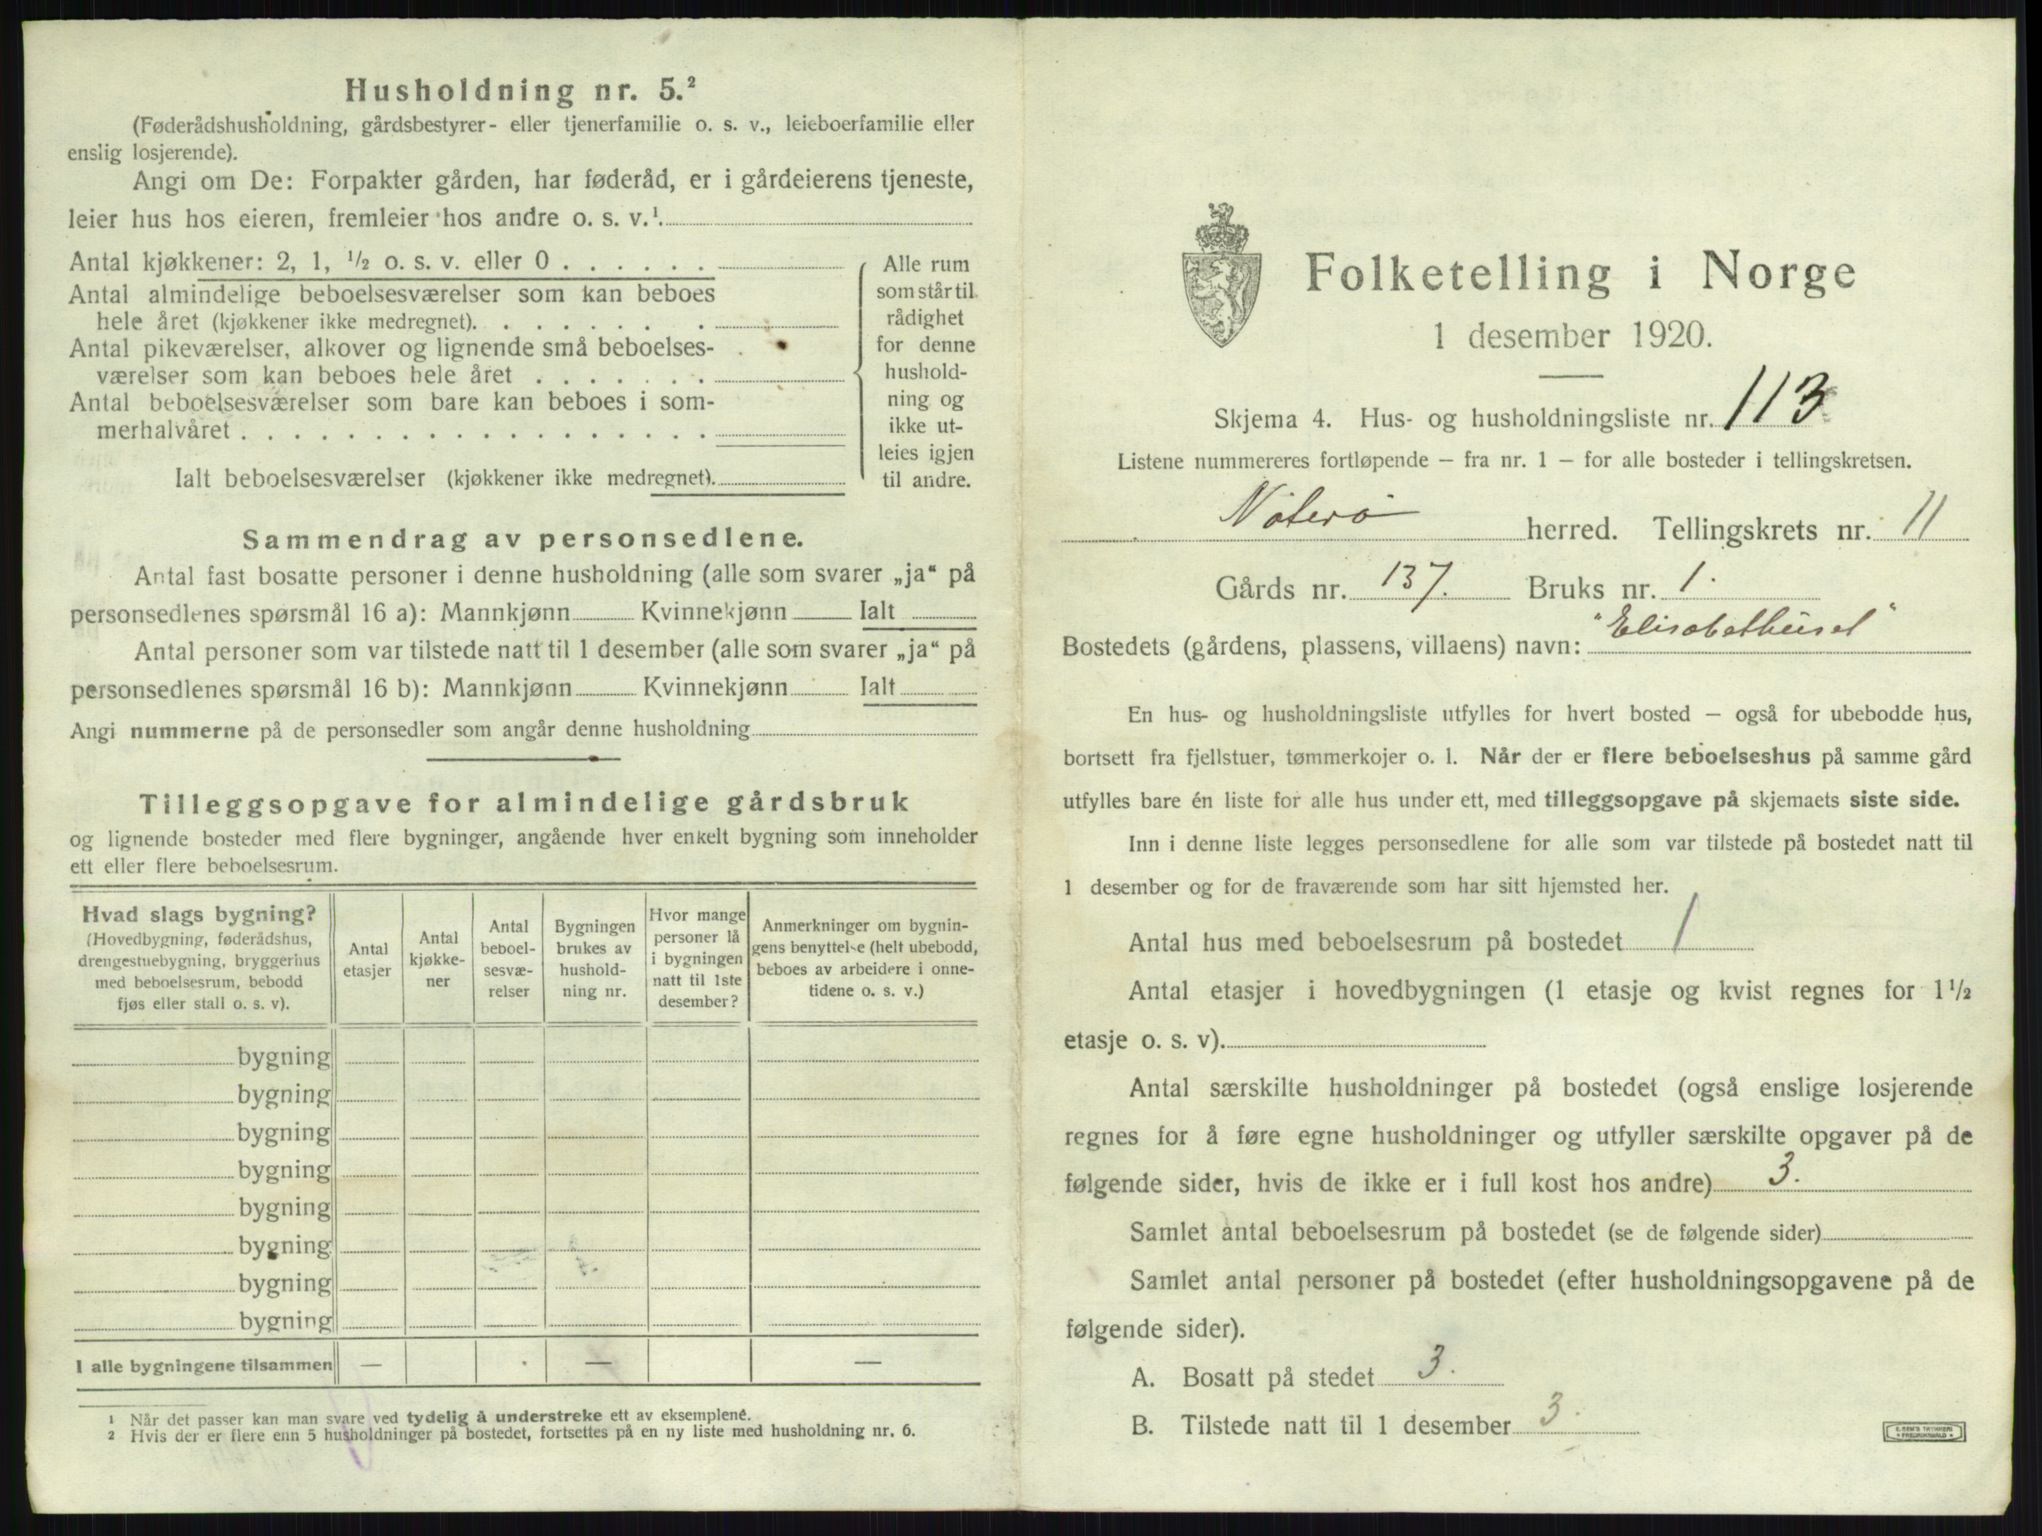 Husholdning nr. 5.²
(Føderådshusholdning, gårdsbestyrer- eller tjenerfamilie o. s. v., leieboerfamilie eller
enslig losjerende).
Angi om De: Forpakter gården, har føderåd, er i gårdeierens tjeneste,
leier hus hos eieren, fremleier hos andre o. s. v.¹
Antal kjøkkener: 2, 1, ½ o. s. v. eller 0 . . . . . .
Antal almindelige beboelsesværelser som kan beboes
hele året (kjøkkener ikke medregnet). . . . . . . .
Antal pikeværelser, alkover og lignende små beboelses-
værelser som kan beboes hele året . . . . . . .
Antal beboelsesværelser som bare kan beboes i som-
merhalvåret . . . . . . . . . . . . . . . . . .
Ialt beboelsesværelser (kjøkkener ikke medregnet).
Alle rum
som står til
rådighet
for denne
hushold-
ning og
ikke ut-
leies igjen
til andre.
Sammendrag av personsedlene.
Antal fast bosatte personer i denne husholdning (alle som svarer „ja“ på
personsedlenes spørsmål 16 a): Mannkjønn Kvinnekjønn Ialt
Antal personer som var tilstede natt til 1 desember (alle som svarer „ja“ på
personsedlenes spørsmål 16 b): Mannkjønn Kvinnekjønn Ialt
Angi nummerne på de personsedler som angår denne husholdning
Tilleggsopgave for almindelige gårdsbruk
og lignende bosteder med flere bygninger, angående hver enkelt bygning som inneholder
ett eller flere beboelsesrum.
Hvad slags bygning?
(Hovedbygning, føderådshus,
drengestuebygning, bryggerhus
med beboelsesrum, bebodd
fjøs eller stall o. s. v).
Antal
etasjer
Antal
kjøkke-
ner
Antal
beboel-
sesvæ-
relser
Bygningen
brukes av
hushold-
ning nr.
Hvor mange
personer lå
i bygningen
natt til 1ste
desember?
Anmerkninger om bygnin-
gens benyttelse (helt ubebodd,
beboes av arbeidere i onne-
tidene o. s. v.)
bygning
bygning
bygning
bygning
bygning
bygning
bygning
bygning
I alle bygningene tilsammen — — —
¹ Når det passer kan man svare ved tydelig å understreke ett av eksemplene.
² Hvis der er flere enn 5 husholdninger på bostedet, fortsettes på en ny liste med husholdning nr. 6.
Folketelling i Norge
1 desember 1920.
Skjema 4. Hus- og husholdningsliste nr. 113
Listene nummereres fortløpende – fra nr. 1 – for alle bosteder i tellingskretsen.
Nøterø herred. Tellingskrets nr. 11
Gårds nr. 137. Bruks nr. 1.
Bostedets (gårdens, plassens, villaens) navn: "Elisabethuset"
En hus- og husholdningsliste utfylles for hvert bosted – også for ubebodde hus,
bortsett fra fjellstuer, tømmerkojer o. l. Når der er flere beboelseshus på samme gård
utfylles bare én liste for alle hus under ett, med tilleggsopgave på skjemaets siste side.
Inn i denne liste legges personsedlene for alle som var tilstede på bostedet natt til
1 desember og for de fraværende som har sitt hjemsted her.
Antal hus med beboelsesrum på bostedet 1
Antal etasjer i hovedbygningen (1 etasje og kvist regnes for 1½
etasje o. s. v).
Antal særskilte husholdninger på bostedet (også enslige losjerende
regnes for å føre egne husholdninger og utfyller særskilte opgaver på de
følgende sider, hvis de ikke er i full kost hos andre) 3.
Samlet antal beboelsesrum på bostedet (se de følgende sider)
Samlet antal personer på bostedet (efter husholdningsopgavene på de
følgende sider).
A. Bosatt på stedet 3.
B. Tilstede natt til 1 desember 3.